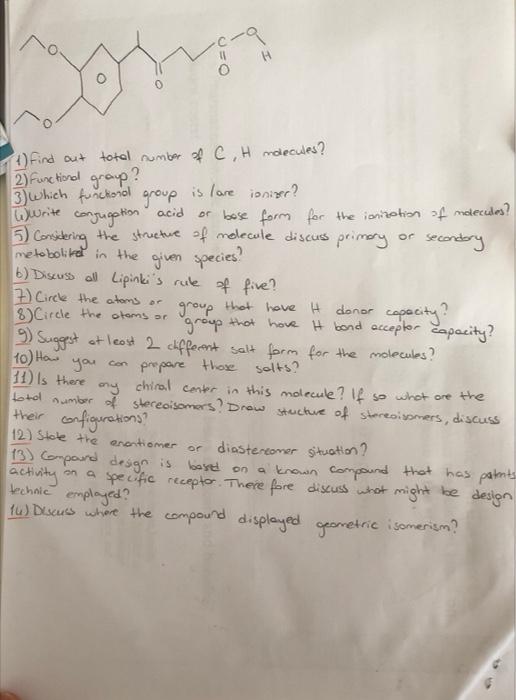 O
O
O
O
C
O
O
H
1) Find out total number of C, H molecules?
2) Functional group?
3) Which functional group is /are ionizer?
4) Write conjugation acid or base form for the ionization of molecules?
5) Considering the structure of molecule discuss primary or secondary
metabolited in the given species?
6) Discuss all Lipinki's rule of five?
7) Circle the atoms or group that have H donor capacity?
8) Circle the atoms or group that have H bond acceptor capacity?
9) Suggest at least 2 different salt form for the molecules?
10) How you can prepare those salts?
11) Is there any chiral center in this molecule? If so what are the
total number of stereoisomers? Draw stucture of stereoisomers, discuss
their configurations?
12) State the enantiomer or diastereomer situation?
13) Compound design is based on a known compound that has patents
activity on a specific receptor. There fore discuss what might be design
technic employed?
14) Discuss where the compound displayed geometric isomerism?